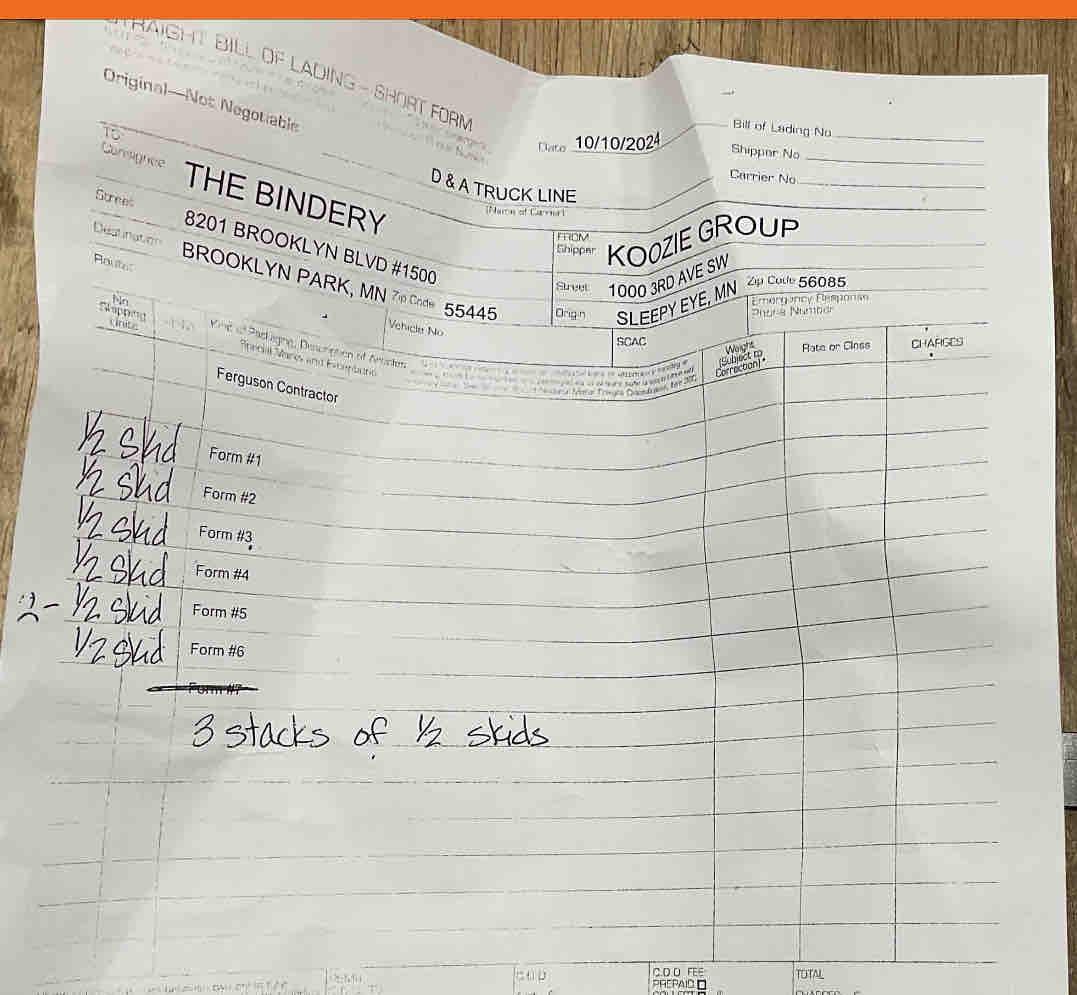 STRAIGHT BILL OF LADING - SHORT FORM
Original—Not Negotiable
Date 10/10/2024
Bill of Lading No.
Shipper No.
Carrier No.
D & A TRUCK LINE
(Name of Carrier)
TO
Consignee THE BINDERY
Street 8201 BROOKLYN BLVD #1500
Destination BROOKLYN PARK, MN Zip Code 55445
Route:
FROM
Shipper KOOZIE GROUP
Street 1000 3RD AVE SW
Origin SLEEPY EYE, MN Zip Code 56085
Vehicle No.
SCAC
Emergency Response
Phone Number
No.
Shipping
Units
Kind of Packaging, Description of Articles,
Special Marks and Exceptions
Weight
(Subject to
Correction)*
Rate or Class
CHARGES
Ferguson Contractor
1/2 skid Form #1
1/2 skid Form #2
1/2 skid Form #3
1/2 skid Form #4
1/2 skid Form #5
1/2 skid Form #6
Form #7
3 stacks of 1/2 skids
C.O.D. FEE:
PREPAID
TOTAL